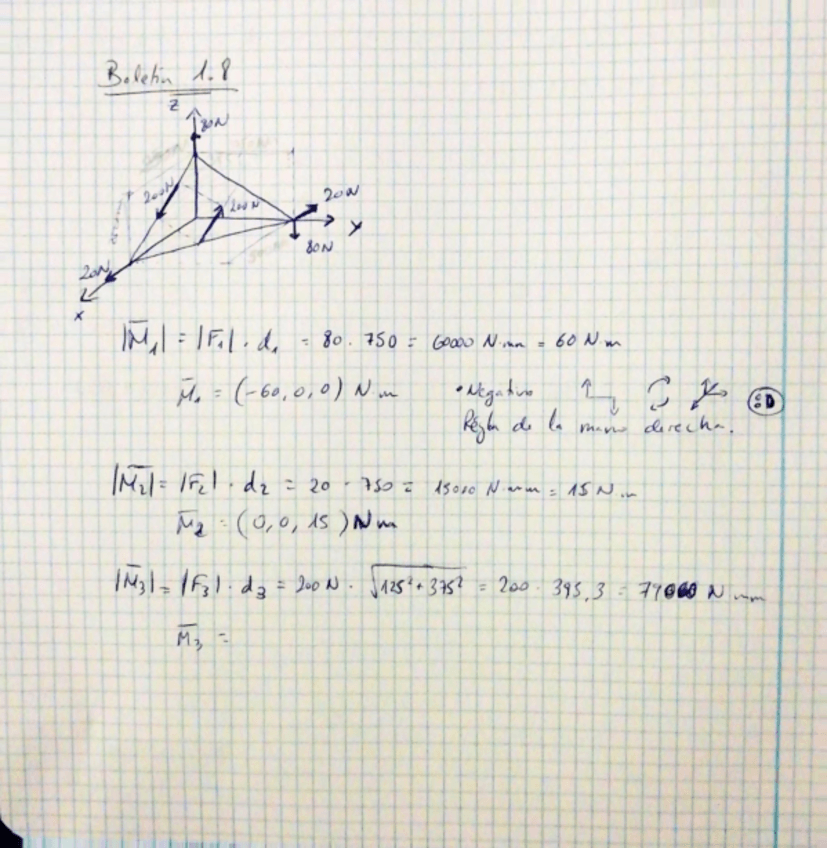 Boletín 1.8
Z
80N
200N
200N
20N
Y
80N
20N
X
|M̄₁| = |F̄₁| · d₁ = 80 · 750 = 60000 N·mm = 60 N·m
M̄₁ = (-60, 0, 0) N·m
• Negativo
Régla de la mano derecha.
:D
|M̄₂| = |F̄₂| · d₂ = 20 · 750 = 15000 N·mm = 15 N·m
M̄₂ = (0, 0, 15) Nm
|M̄₃| = |F̄₃| · d₃ = 200 N · √125² + 375² = 200 · 395,3 = 79060 N·mm
M̄₃ =